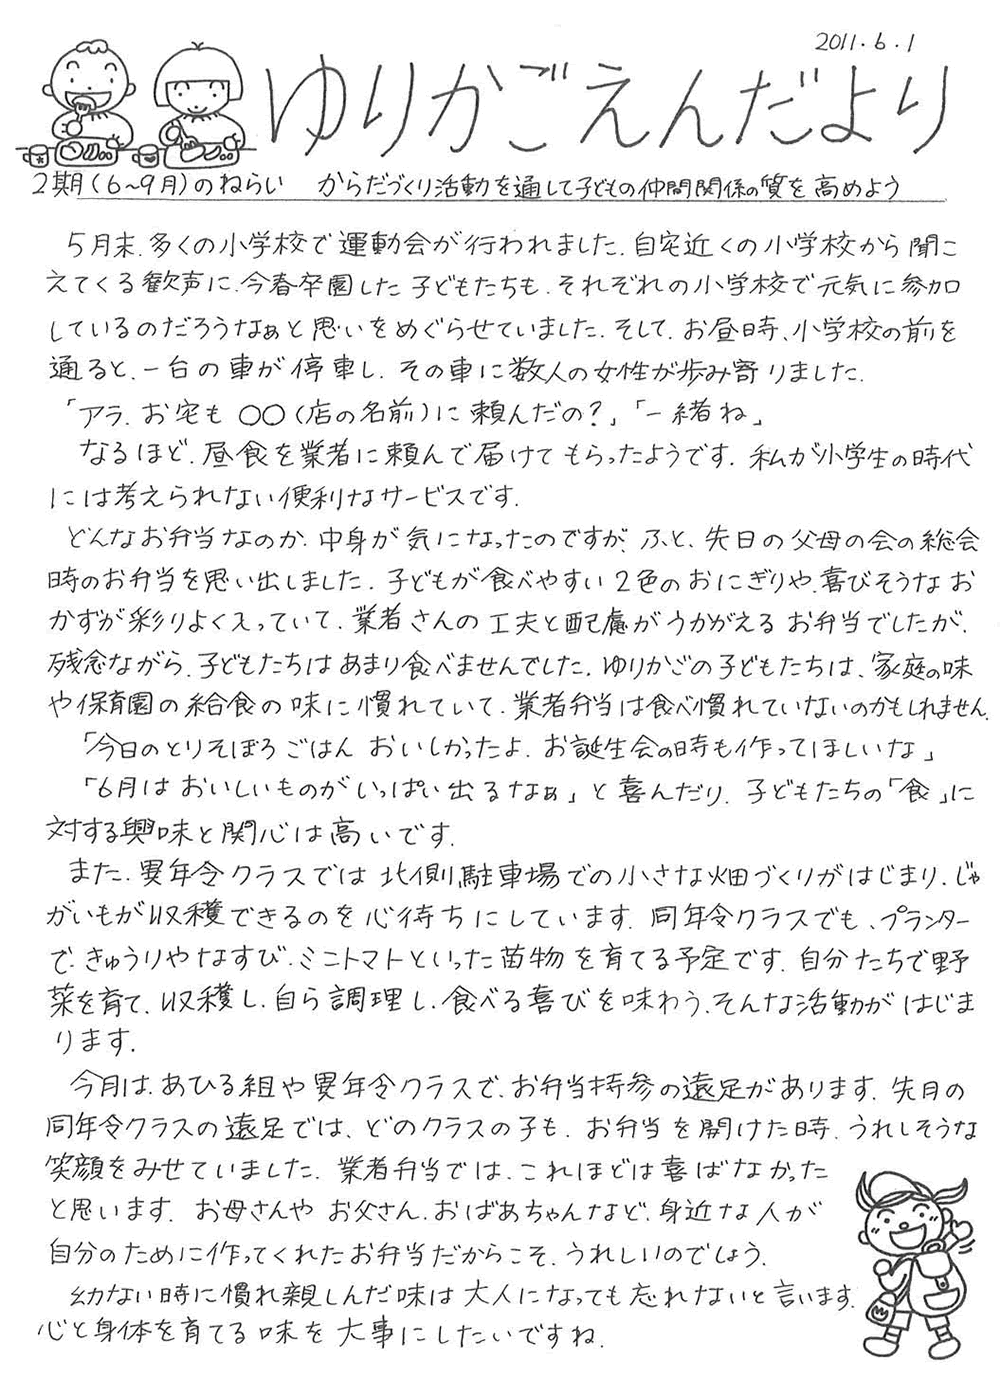 2011.6.1
ゆりかごえんだより
2期(6~9月)のねらい からだづくり活動を通して子どもの仲間関係の質を高めよう
5月末、多くの小学校で運動会が行われました。自宅近くの小学校から聞こ
えてくる歓声に、今春卒園した子どもたちも、それぞれの小学校で元気に参加
しているのだろうなぁと思いをめぐらせていました。そして、お昼時、小学校の前を
通ると、一台の車が停車し、その車に数人の女性が歩み寄りました。
「アラ、お宅も〇〇(店の名前)に頼んだの?」「一緒ね」
なるほど、昼食を業者に頼んで届けてもらったようです。私が小学生の時代
には考えられない便利なサービスです。
どんなお弁当なのか、中身が気になったのですが、ふと、先日の父母の会の総会
時のお弁当を思い出しました。子どもが食べやすい2色のおにぎりや、喜びそうなお
かずが彩りよく入っていて、業者さんの工夫と配慮がうかがえるお弁当でしたが、
残念ながら、子どもたちはあまり食べませんでした。ゆりかごの子どもたちは、家庭の味
や保育園の給食の味に慣れていて、業者弁当は食べ慣れていないのかもしれません。
「今日のとりそぼろごはんおいしかったよ、お誕生会の時も作ってほしいな」
「6月はおいしいものがいっぱい出るなぁ」と喜んだり、子どもたちの「食」に
対する興味と関心は高いです。
また、異年令クラスでは北側駐車場での小さな畑づくりがはじまり、じゃ
がいもが収穫できるのを心待ちにしています。同年令クラスでも、プランター
で、きゅうりやなすび、ミニトマトといった苗物を育てる予定です。自分たちで野
菜を育て、収穫し、自ら調理し、食べる喜びを味わう、そんな活動がはじま
ります。
今月は、あひる組や異年令クラスで、お弁当持参の遠足があります。先月の
同年令クラスの遠足では、どのクラスの子も、お弁当を開けた時、うれしそうな
笑顔をみせていました。業者弁当では、これほどは喜ばなかった
と思います。お母さんやお父さん、おばあちゃんなど、身近な人が
自分のために作ってくれたお弁当だからこそ、うれしいのでしょう。
幼ない時に慣れ親しんだ味は大人になっても忘れないと言います。
心と身体を育てる味を大事にしたいですね。